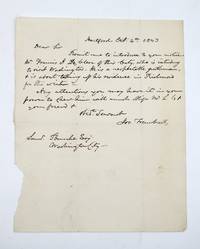 Hartford Oct 4th 1843
Dear Sir
Permit me to introduce to your notice
Mr Francis J. of this City, who is intending
to visit Washington. He is a respectable gentleman,
& is about taking up his residence in Richmond
for the winter —
Any attentions you may have it in your
power to shew him will much oblige Mr &
your friend &
Servant
Jos. Trumbull
Esq
Washington City